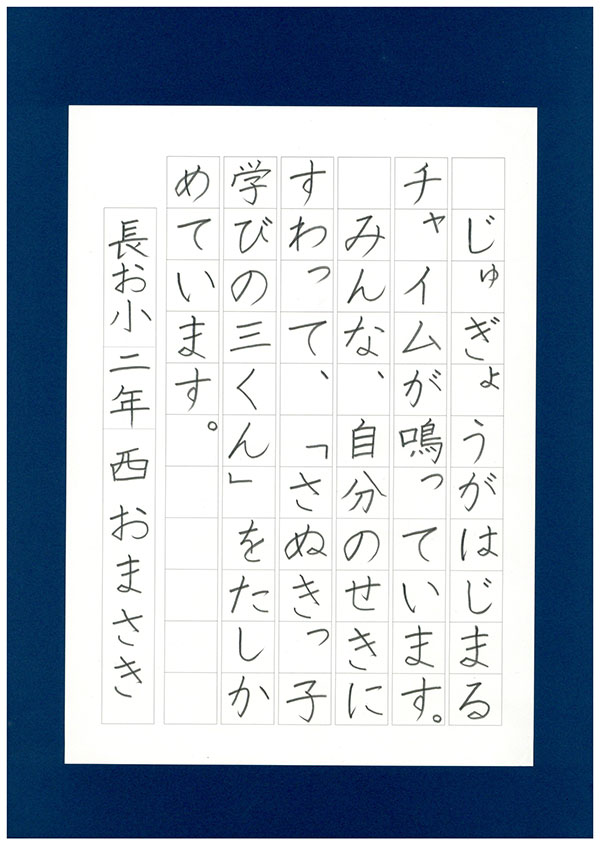 じゅぎょうがはじまる
チャイムが鳴っています。
みんな、自分のせきに
すわって、「さぬきっ子
学びの三くん」をたしか
めています。
長お小二年西おまさき